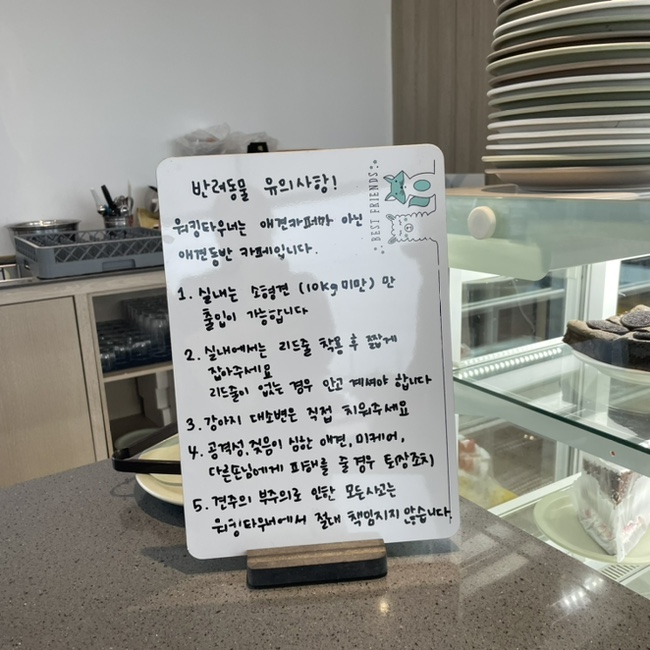 반려동물 유의사항!
BEST FRIENDS
워킹타우너는 애견카페가 아닌
애견동반 카페입니다.
1. 실내는 소형견 (10kg 미만) 만
출입이 가능합니다
2. 실내에서는 리드줄 착용 후 짧게
잡아주세요
리드줄이 없는 경우 안고 계셔야 합니다
3. 강아지 대소변은 직접 치워주세요
4. 공격성, 짖음이 심한 애견, 미케어,
다른손님에게 피해를 줄 경우 퇴장조치
5. 견주의 부주의로 인한 모든사고는
워킹타우너에서 절대 책임지지 않습니다.